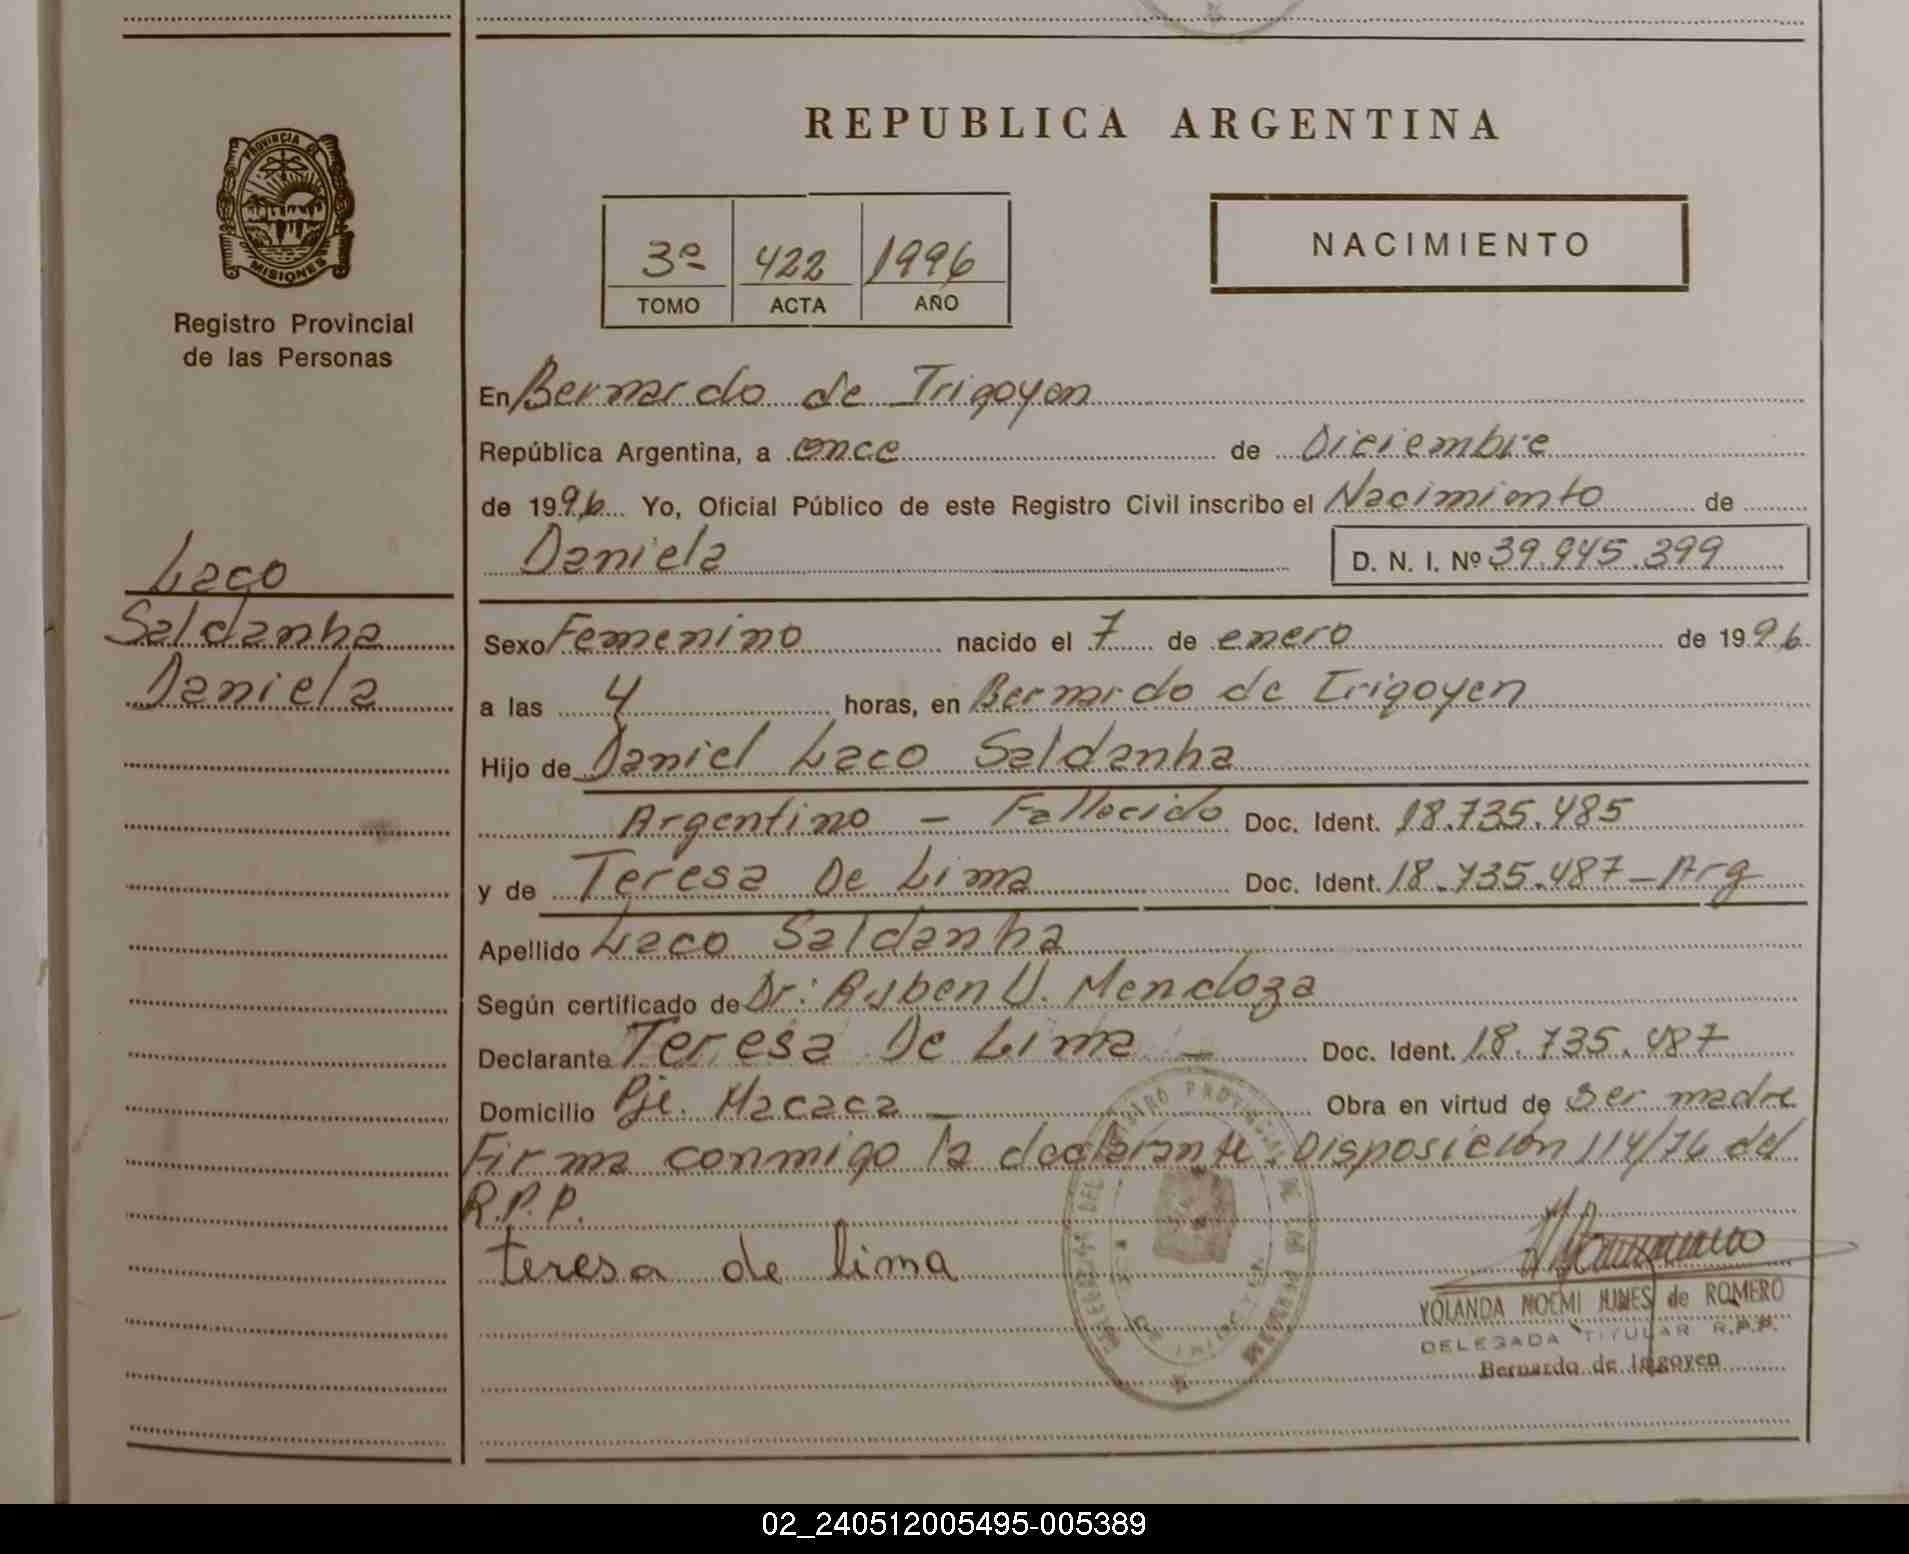 PROVINCIA DE
MISIONES
Registro Provincial
de las Personas
Laco
Saldanha
Daniela
REPUBLICA ARGENTINA
3º 422 1996
TOMO ACTA AÑO
NACIMIENTO
En Bernardo de Irigoyen
República Argentina, a once de Diciembre
de 1996 Yo, Oficial Público de este Registro Civil inscribo el Nacimiento de
Daniela D. N. I. Nº 39.945.399
Sexo Femenino nacido el 7 de enero de 1996
a las 4 horas, en Bernardo de Irigoyen
Hijo de Daniel Laco Saldanha
Argentino - Fallecido Doc. Ident. 18.735.485
y de Teresa De Lima Doc. Ident. 18.735.487 - Arg
Apellido Laco Saldanha
Según certificado de Dr: Ruben U. Mendoza
Declarante Teresa De Lima - Doc. Ident. 18.735.487
Domicilio Pje. Macaca - Obra en virtud de ser madre
Firma conmigo la declarante. Disposición 114/76 del
R.P.P.
teresa de lima
YOLANDA NOEMI JUNES de ROMERO
DELEGADA TITULAR R.P.P.
Bernardo de Irigoyen
02_240512005495-005389